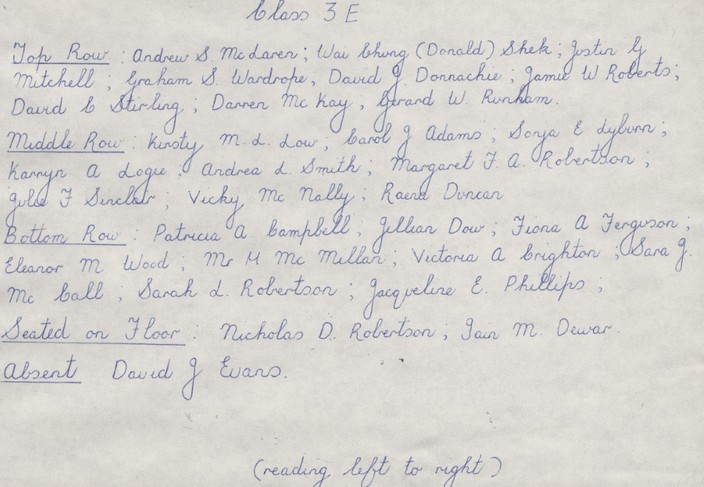 Class 3 E
Top Row : Andrew S. McLaren ; Wai Chung (Donald) Shek ; Justin G
Mitchell ; Graham S. Wardrope, David J. Donnachie ; Jamie W Roberts ;
David C Stirling ; Darren McKay , Gerard W. Runham.
Middle Row : Kirsty M. L. Low ; Carol J Adams ; Sonja E Lyburn ;
Karryn A Logie ; Andrea L. Smith ; Margaret F. A. Robertson ;
Julie F Sinclair ; Vicky Mc Nally ; Raena Duncan
Bottom Row : Patricia A Campbell, Jillian Dow ; Fiona A Ferguson ;
Eleanor M Wood ; Mr H Mc Millan ; Victoria A Crighton ; Sara J.
Mc Call ; Sarah L. Robertson ; Jacqueline E. Phillips ;
Seated on Floor : Nicholas D. Robertson ; Iain M. Dewar.
Absent David J Evans.
(reading left to right)